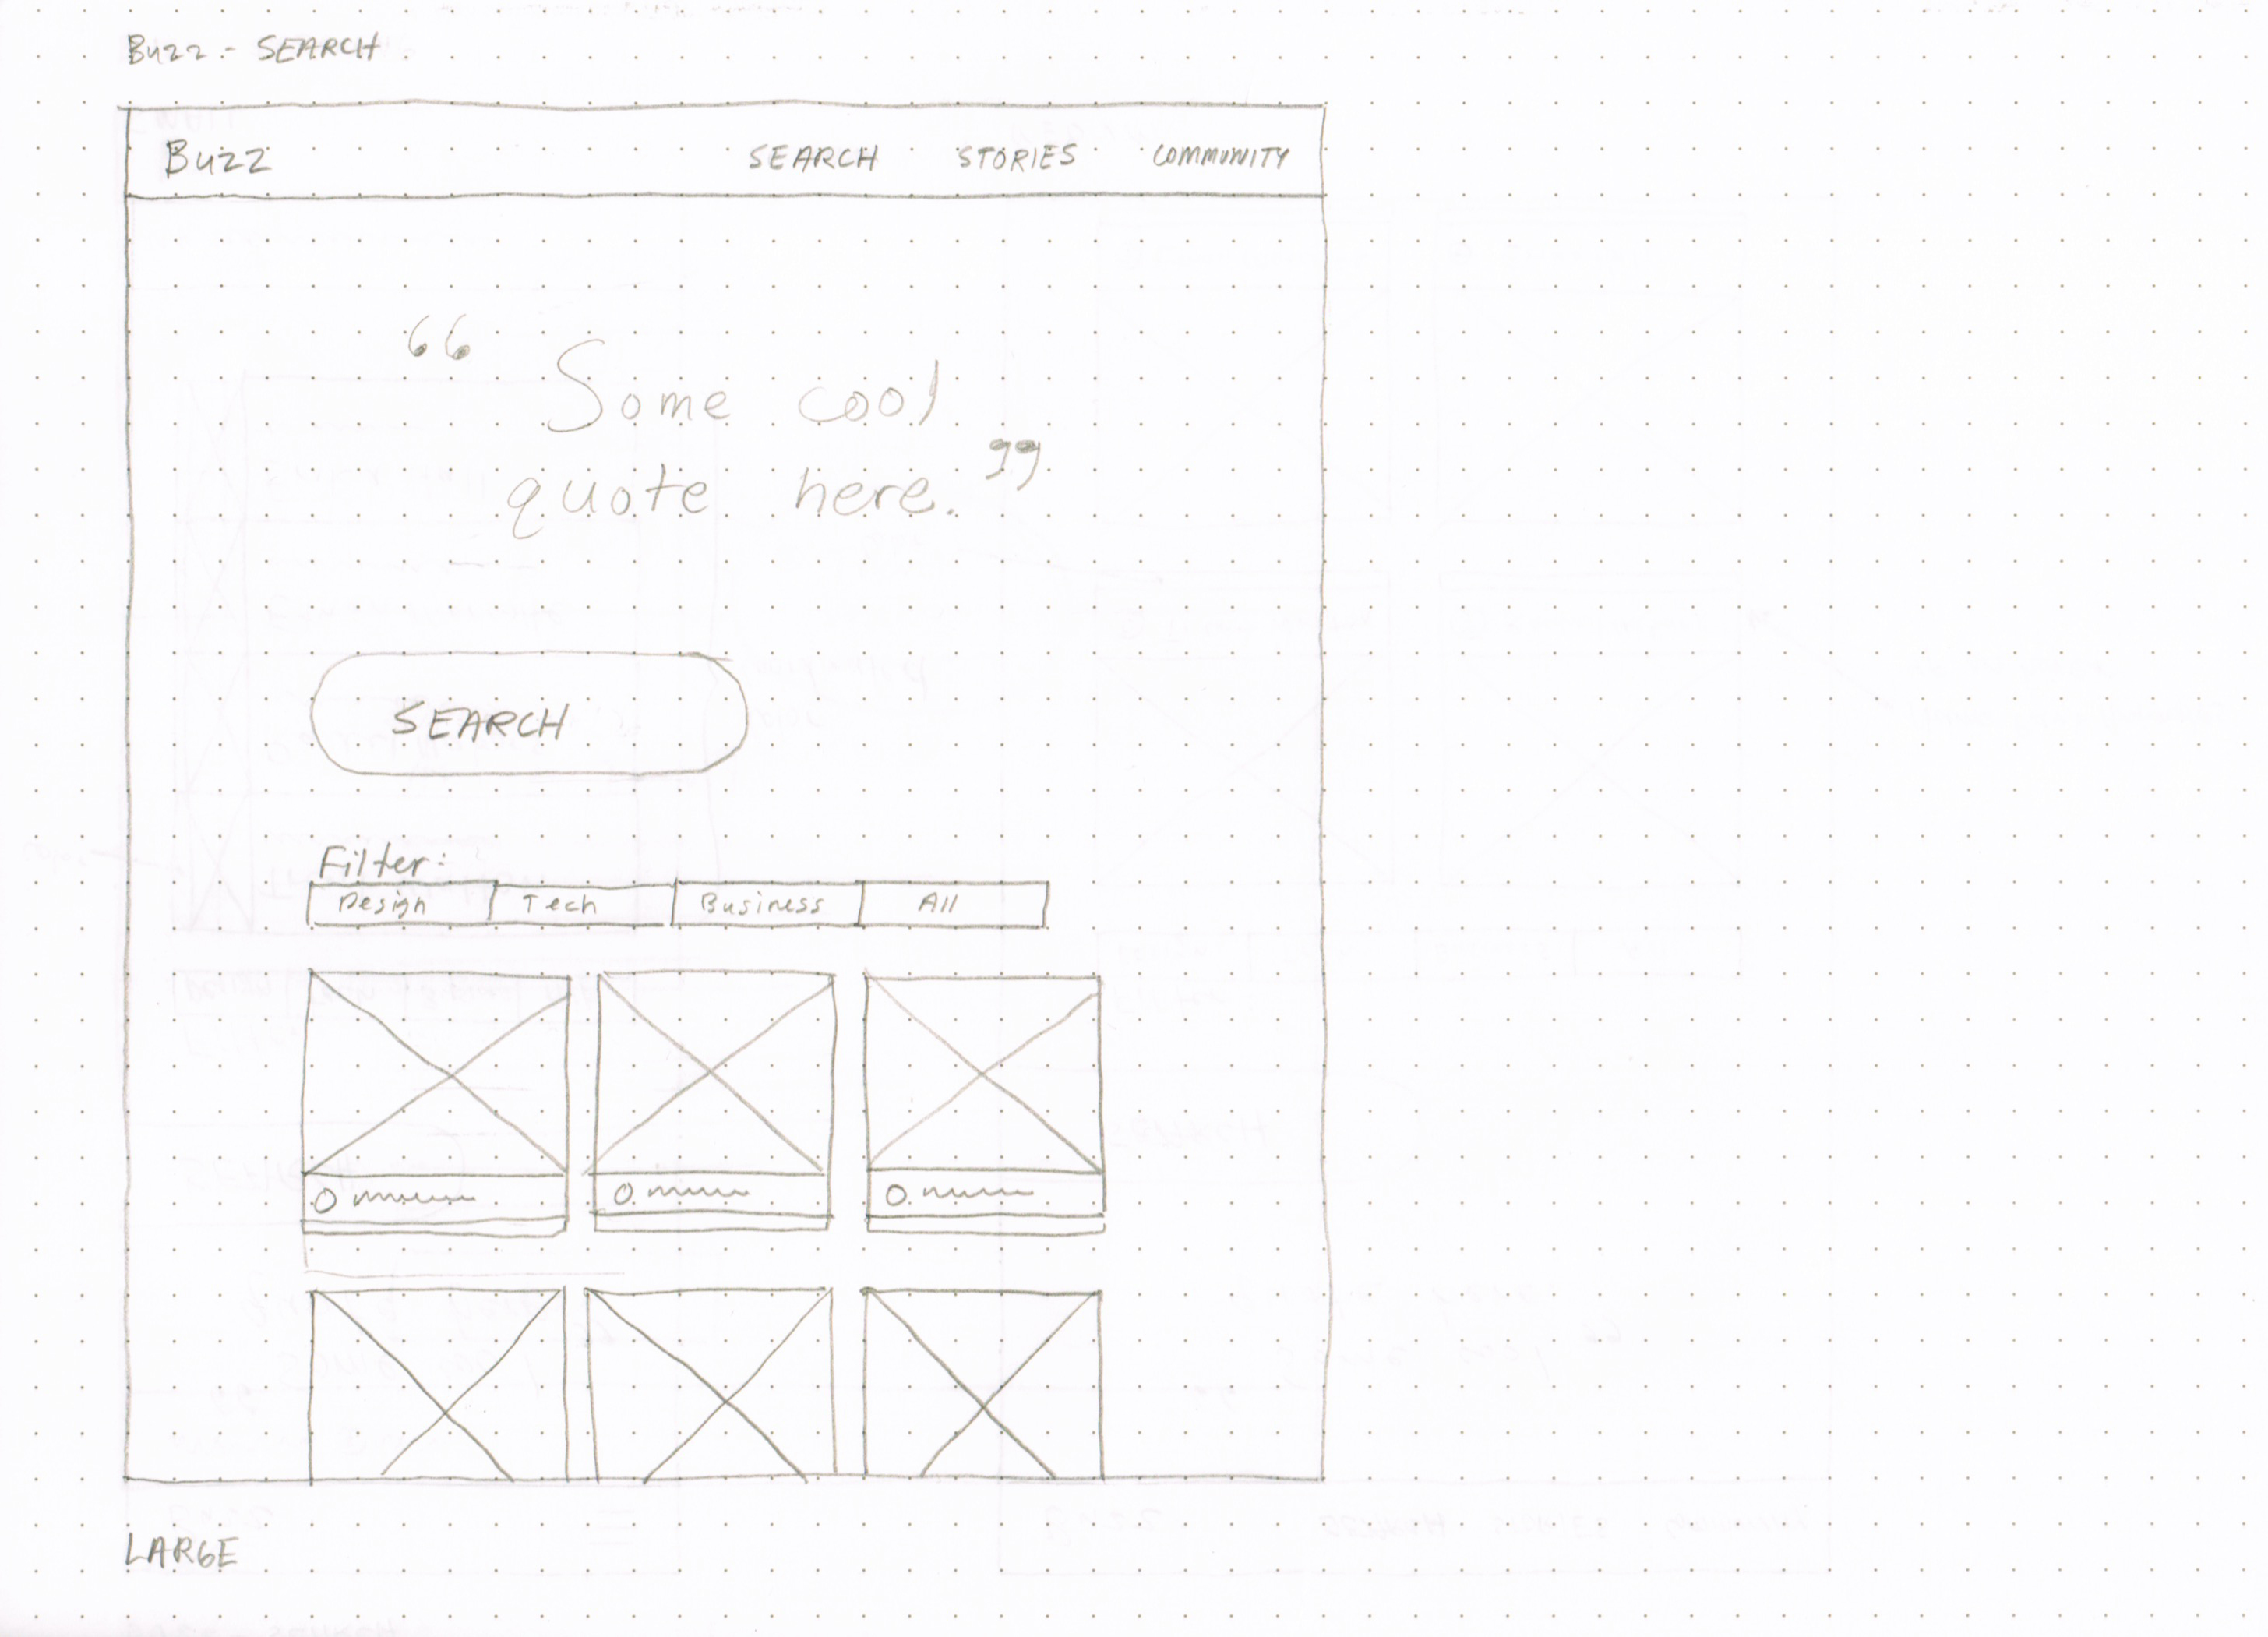 Buzz - SEARCH
Buzz SEARCH STORIES COMMUNITY
“ Some cool
quote here. ”
SEARCH
Filter:
Design Tech Business All
LARGE